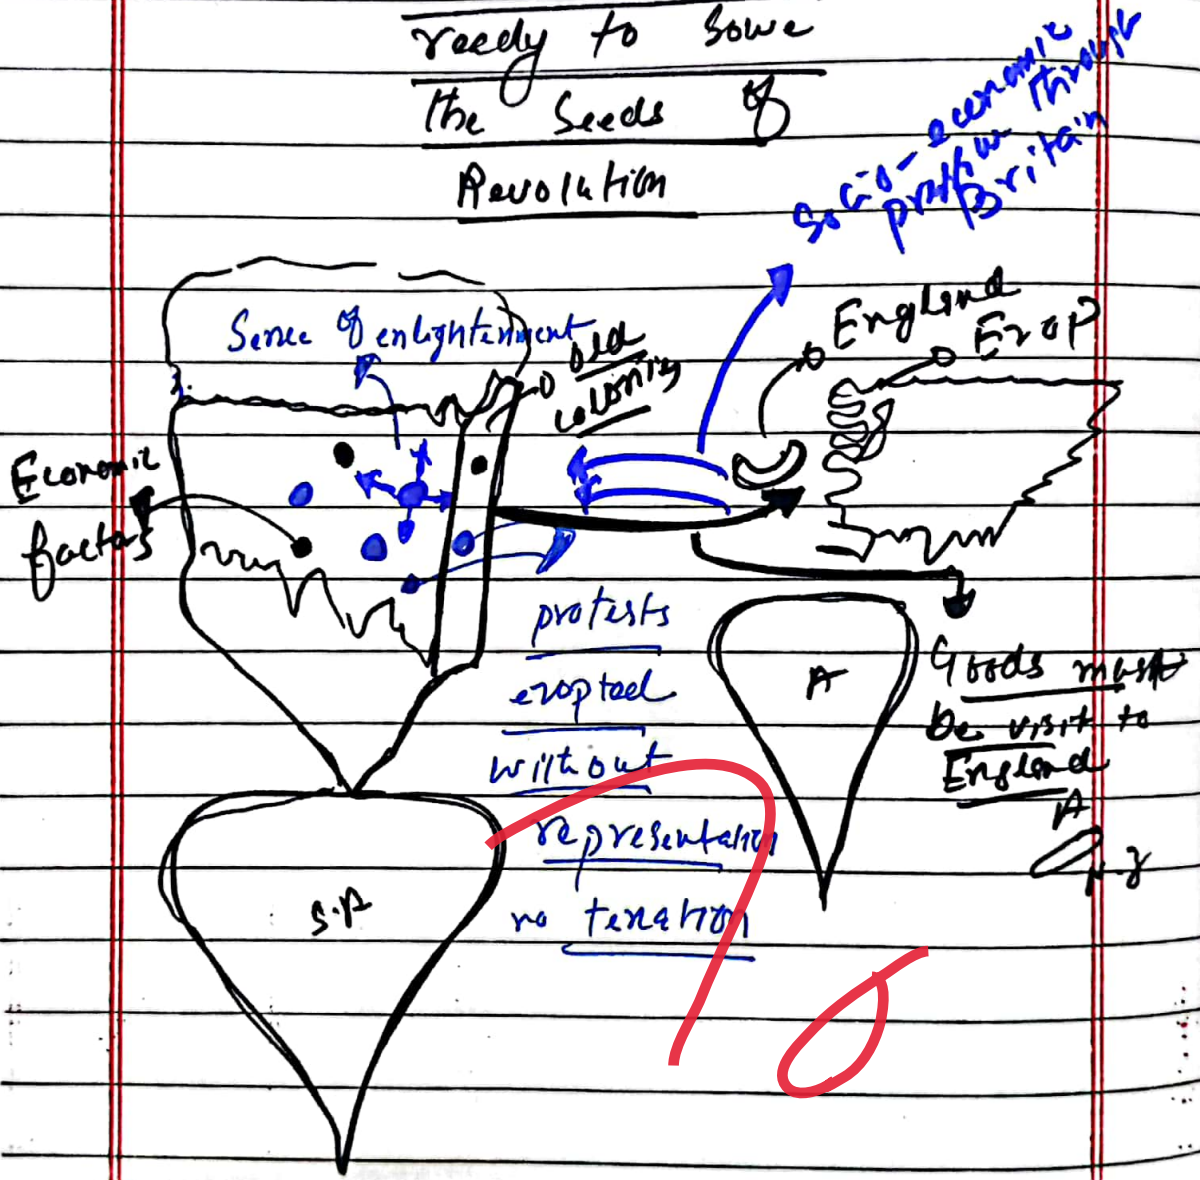 ready to sowe
the seeds of
Revolution
Socio-economic
through
Britain
England
Erop
Sence of enlightenment
old
coloniis
Economic
factors
protests
eropted
without
representation
no texation
A
Goods must
be visit to
England
A
S.A